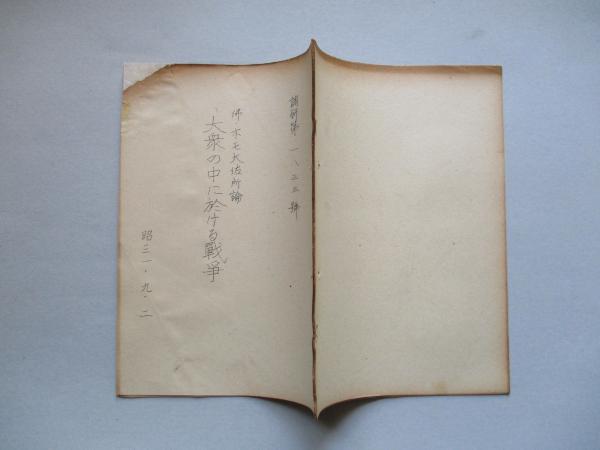 調研第一、二三三號
佛ホモ大佐所論
、大衆の中に於ける戰爭
昭三一・九・二